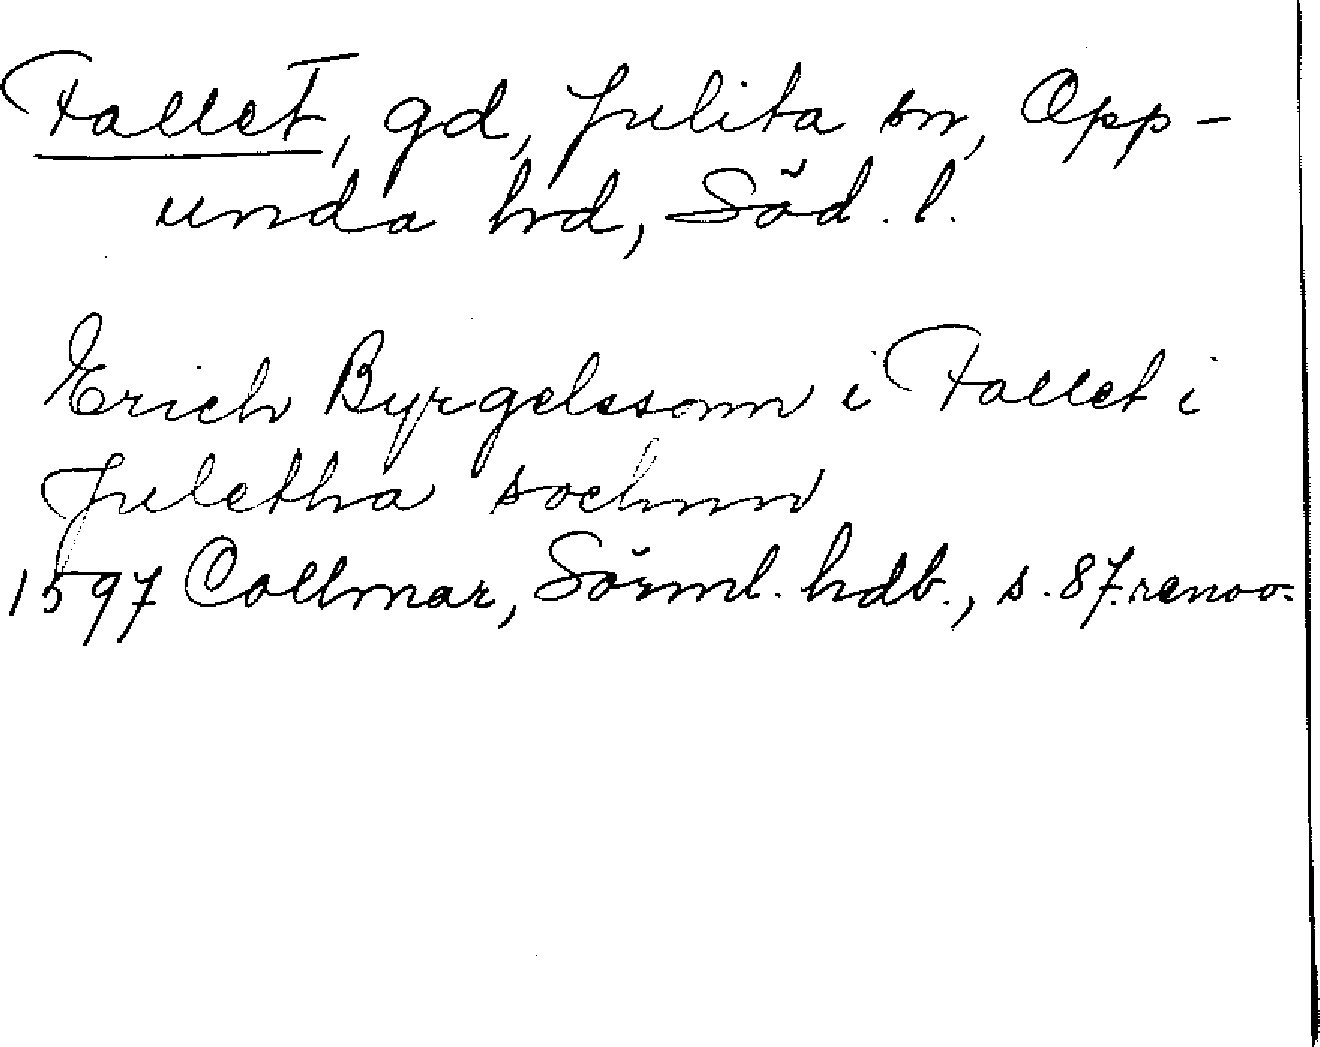 Fallet, gd, Julita sn, Opp-
unda hrd, Söd. l.
Erich Byrgelssonn i Fallet i
Juletha sochnn
1597 Collmar, Sörml. hdb., s. 87. renov.